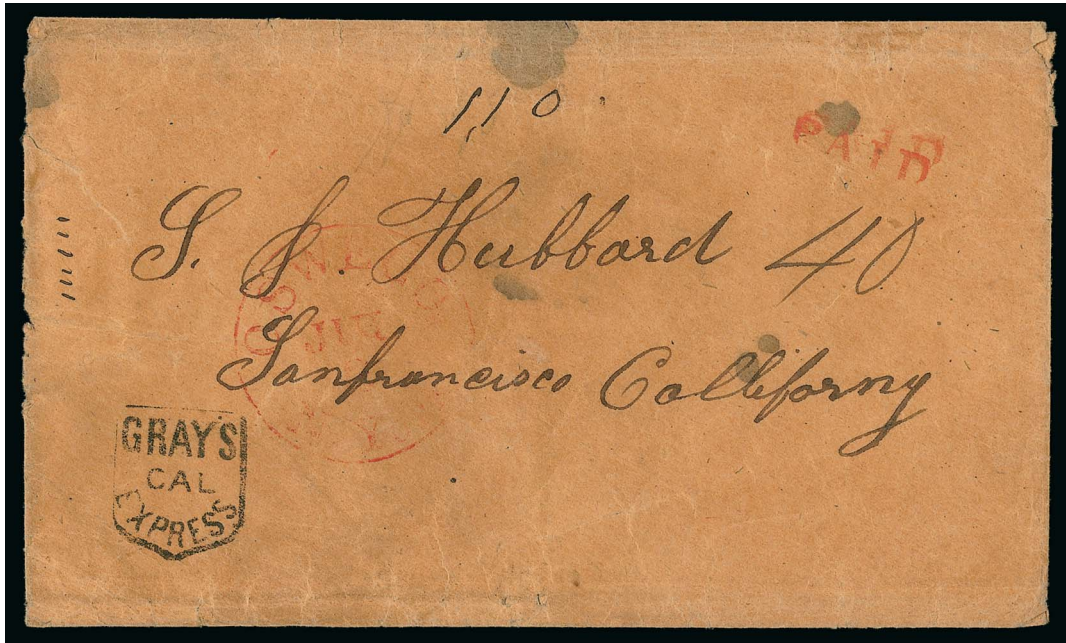 110
PAID
S. J. Hubbard 40
OSWEGO
JUL
N.Y.
Sanfrancisco Calliforny
GRAY'S
CAL
EXPRESS